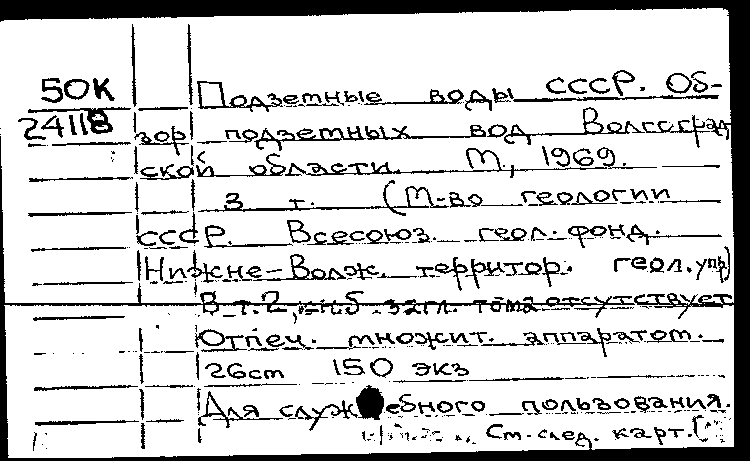 50К
24118
Подземные воды СССР. Об-
зор подземных вод Волгоград
ской области. М., 1969.
3 т. (М-во геологии
СССР. Всесоюз. геол. фонд.
Нижне-Волж. территор. геол. упр)
В т.2, кн.5 загл. тома отсутствует
Отпеч. множит. аппаратом.
26cm 150 экз
Для служебного пользования.
См. след. карт.